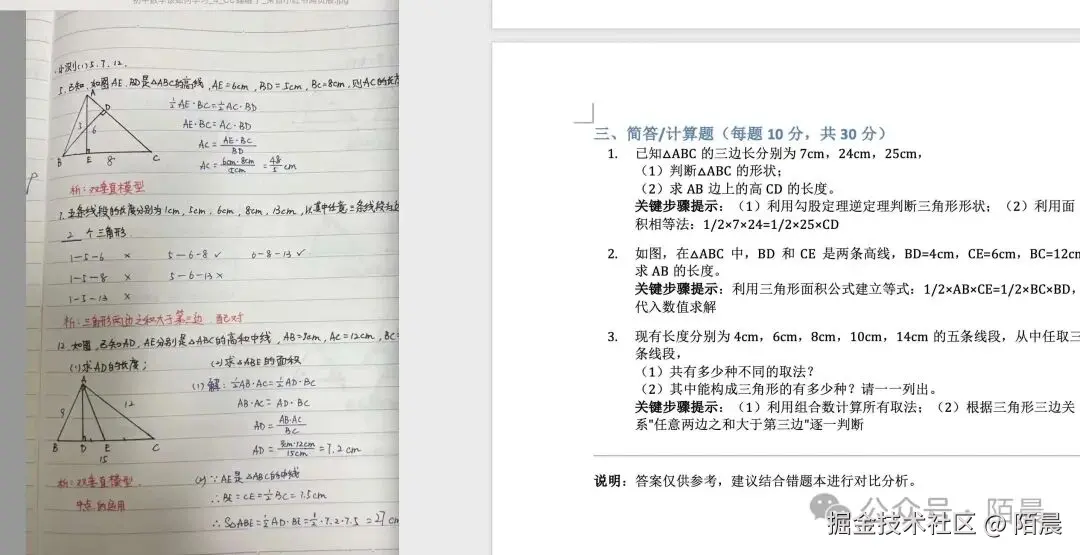 分测(1) 5.7.12.
5.已知,如图AE、BD是△ABC的高线,AE=6cm,BD=5cm,BC=8cm,则AC的长度
A
D
3
6
B
E
8
C
½AE·BC=½AC·BD
AE·BC=AC·BD
AC=AE·BC/BD
AC=6cm·8cm/5cm=48/5cm
析:双垂直模型
7.五条线段的长度分别为1cm,5cm,6cm,8cm,13cm,以其中任意三条线段为边
2 个三角形.
1—5—6 × 5—6—8 ✓ 6—8—13 ✓
1—5—8 × 5—6—13 ×
1—5—13 ×
析:三角形两边之和大于第三边 配对
12.如图,已知AD、AE分别是△ABC的高和中线,AB=9cm,AC=12cm,BC=
(1)求AD的长度; (2)求△ABE的面积
A
9
12
B
D
E
C
15
(1)解:½AB·AC=½AD·BC
AB·AC=AD·BC
AD=AB·AC/BC
AD=9cm·12cm/15cm=7.2cm
析:双垂直模型
中点的运用
(2)∵AE是△ABC的中线
∴BE=CE=½BC=7.5cm
∴S△ABE=½AD·BE=½·7.2·7.5=27cm
三、简答/计算题(每题 10 分,共 30 分)
1. 已知△ABC 的三边长分别为 7cm,24cm,25cm,
(1)判断△ABC 的形状;
(2)求 AB 边上的高 CD 的长度。
关键步骤提示:(1)利用勾股定理逆定理判断三角形形状;(2)利用面
积相等法:1/2×7×24=1/2×25×CD
2. 如图,在△ABC 中,BD 和 CE 是两条高线,BD=4cm,CE=6cm,BC=12cm
求 AB 的长度。
关键步骤提示:利用三角形面积公式建立等式:1/2×AB×CE=1/2×BC×BD,
代入数值求解
3. 现有长度分别为 4cm,6cm,8cm,10cm,14cm 的五条线段,从中任取三
条线段,
(1)共有多少种不同的取法?
(2)其中能构成三角形的有多少种?请一一列出。
关键步骤提示:(1)利用组合数计算所有取法;(2)根据三角形三边关
系"任意两边之和大于第三边"逐一判断
说明:答案仅供参考,建议结合错题本进行对比分析。
公众号·陌晨
掘金技术社区 @ 陌晨